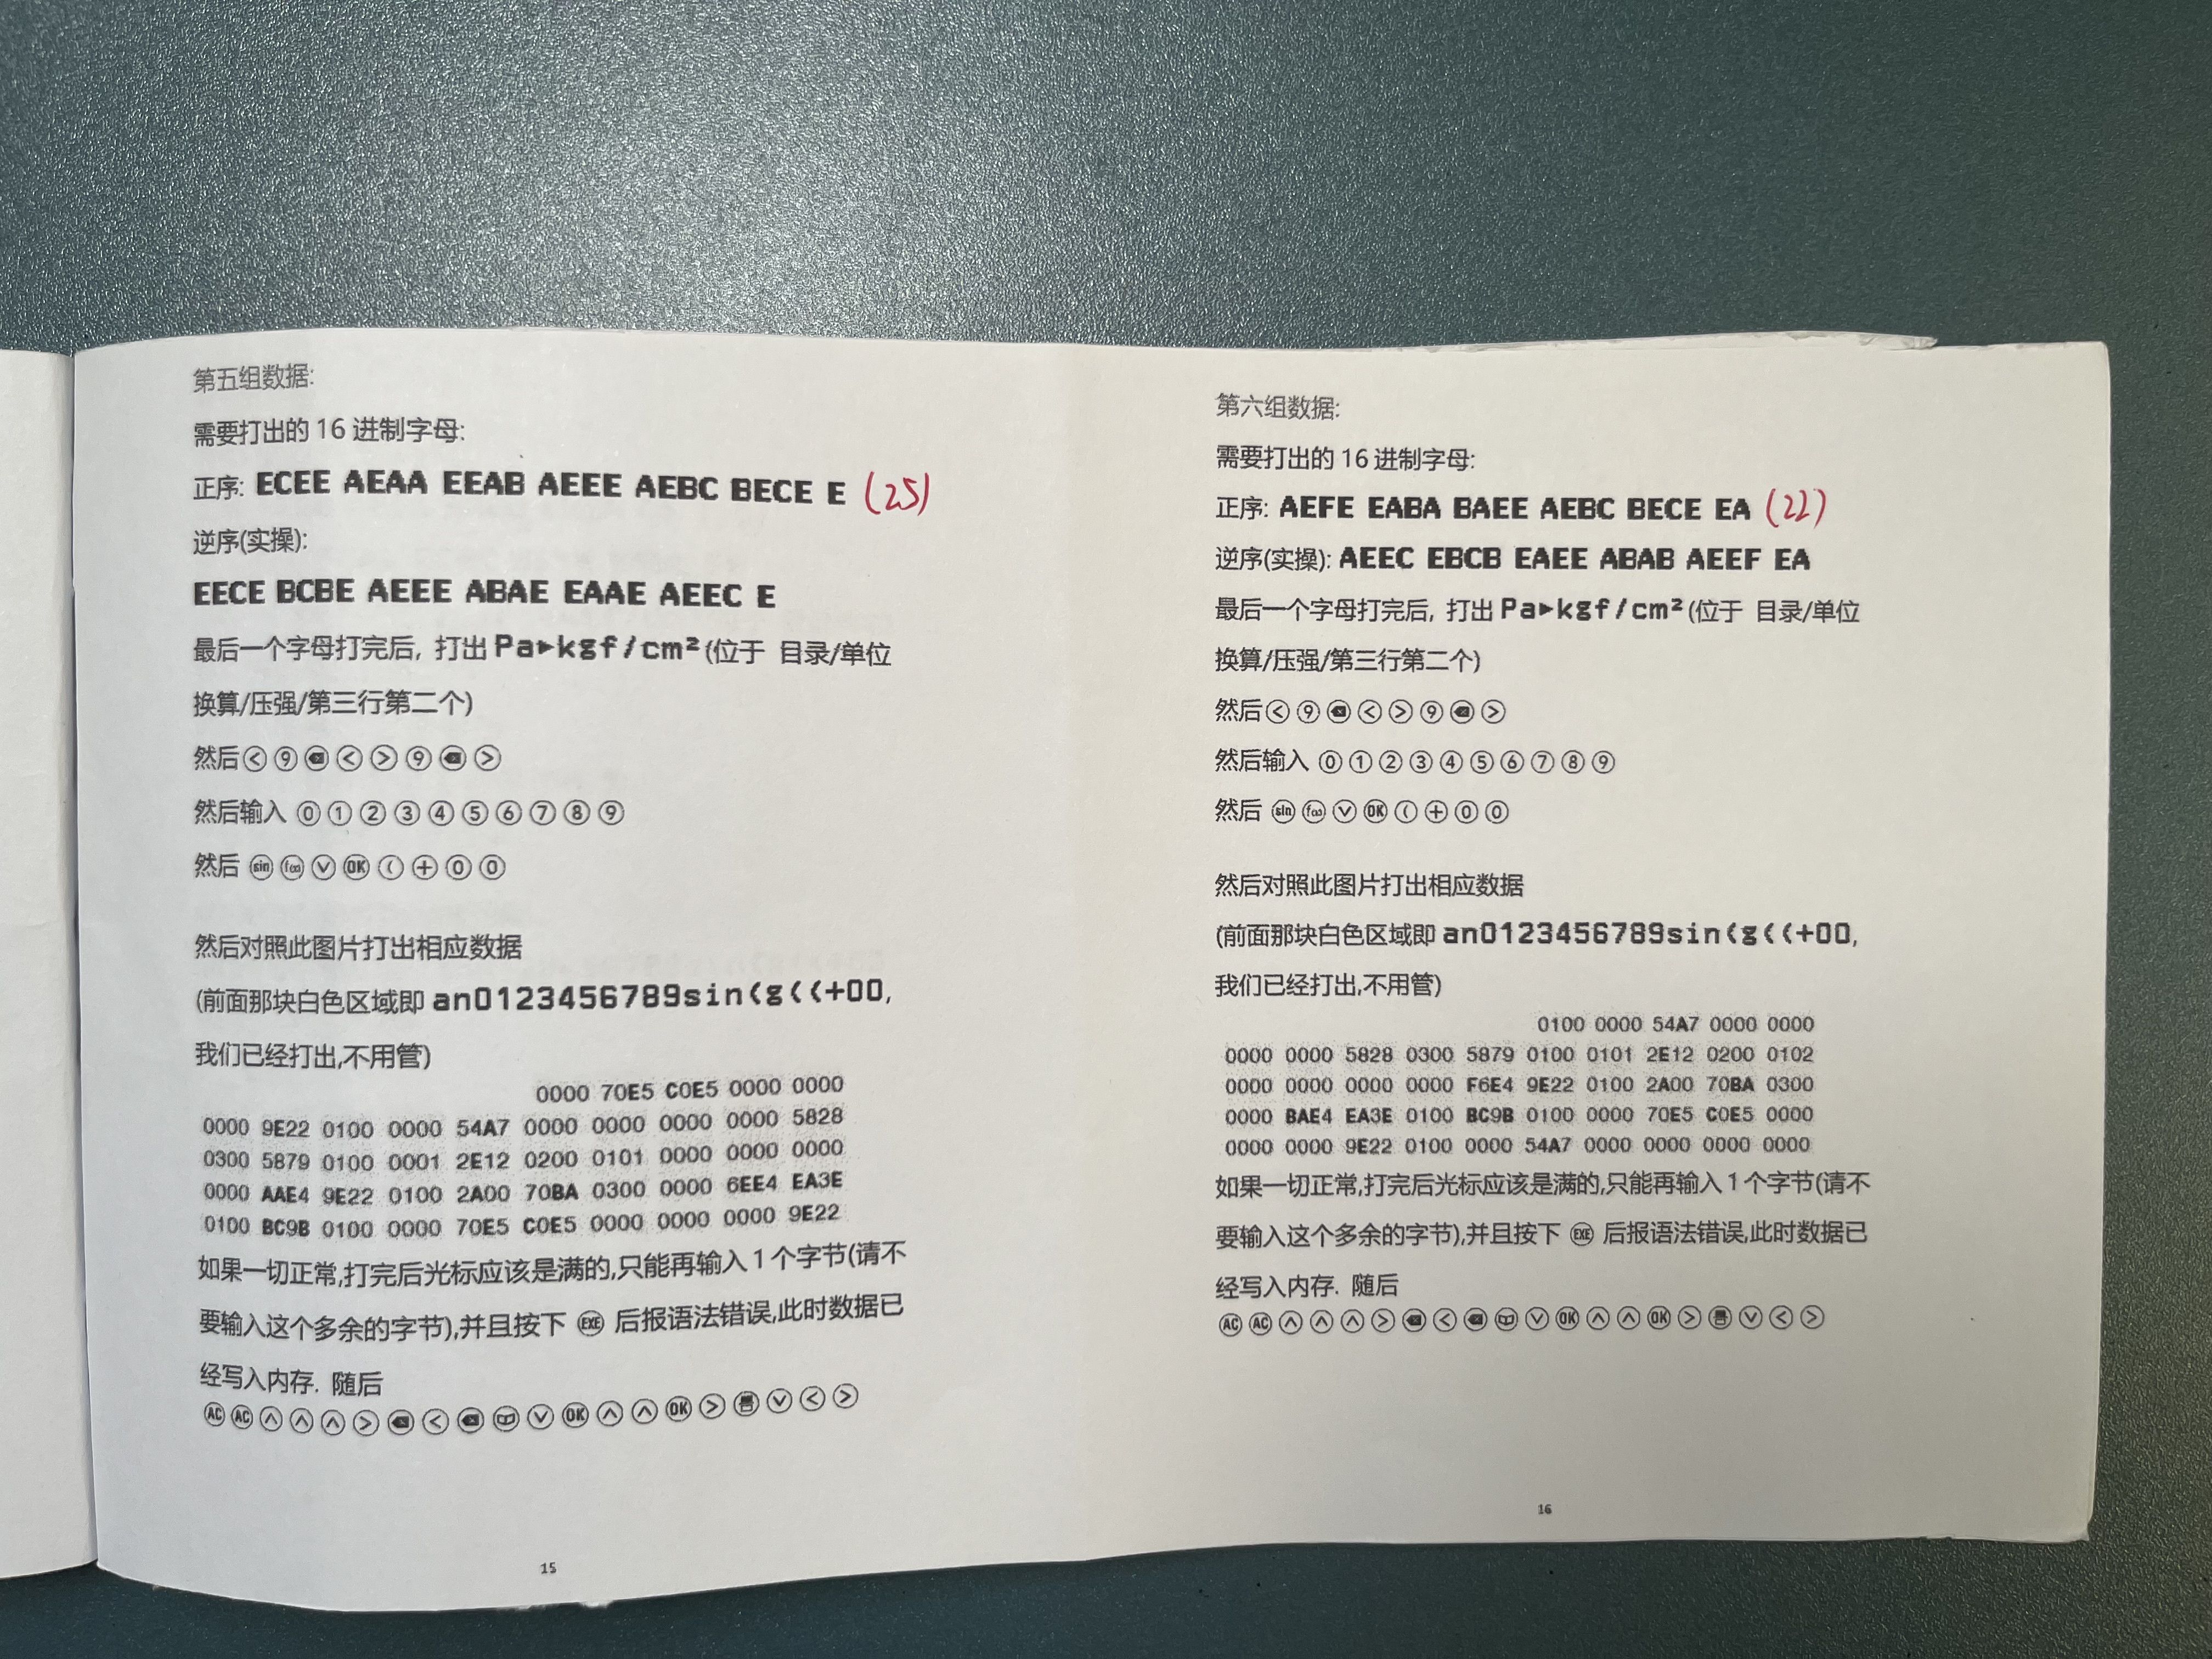 第五组数据:
需要打出的 16 进制字母:
正序: ECEE AEAA EEAB AEEE AEBC BECE E (25)
逆序(实操):
EECE BCBE AEEE ABAE EAAE AEEC E
最后一个字母打完后, 打出 Pa▸kgf/cm²(位于 目录/单位
换算/压强/第三行第二个)
然后<9⌫<>9⌫>
然后输入 0123456789
然后 sin f(x) ∨ OK ( + 0 0
然后对照此图片打出相应数据
(前面那块白色区域即 an0123456789sin(g((+00,
我们已经打出,不用管)
0000 70E5 C0E5 0000 0000
0000 9E22 0100 0000 54A7 0000 0000 0000 0000 5828
0300 5879 0100 0001 2E12 0200 0101 0000 0000 0000
0000 AAE4 9E22 0100 2A00 70BA 0300 0000 6EE4 EA3E
0100 BC9B 0100 0000 70E5 C0E5 0000 0000 0000 9E22
如果一切正常,打完后光标应该是满的,只能再输入 1 个字节(请不
要输入这个多余的字节),并且按下 EXE 后报语法错误,此时数据已
经写入内存. 随后
AC AC ∧ ∧ ∧ > ⌫ < ⌫ 📖 ∨ OK ∧ ∧ OK > 🖶 ∨ < >
15
第六组数据:
需要打出的 16 进制字母:
正序: AEFE EABA BAEE AEBC BECE EA (22)
逆序(实操): AEEC EBCB EAEE ABAB AEEF EA
最后一个字母打完后, 打出 Pa▸kgf/cm²(位于 目录/单位
换算/压强/第三行第二个)
然后<9⌫<>9⌫>
然后输入 0123456789
然后 sin f(x) ∨ OK ( + 0 0
然后对照此图片打出相应数据
(前面那块白色区域即 an0123456789sin(g((+00,
我们已经打出,不用管)
0100 0000 54A7 0000 0000
0000 0000 5828 0300 5879 0100 0101 2E12 0200 0102
0000 0000 0000 0000 F6E4 9E22 0100 2A00 70BA 0300
0000 BAE4 EA3E 0100 BC9B 0100 0000 70E5 C0E5 0000
0000 0000 9E22 0100 0000 54A7 0000 0000 0000 0000
如果一切正常,打完后光标应该是满的,只能再输入 1 个字节(请不
要输入这个多余的字节),并且按下 EXE 后报语法错误,此时数据已
经写入内存. 随后
AC AC ∧ ∧ ∧ > ⌫ < ⌫ 📖 ∨ OK ∧ ∧ OK > 🖶 ∨ < >
16